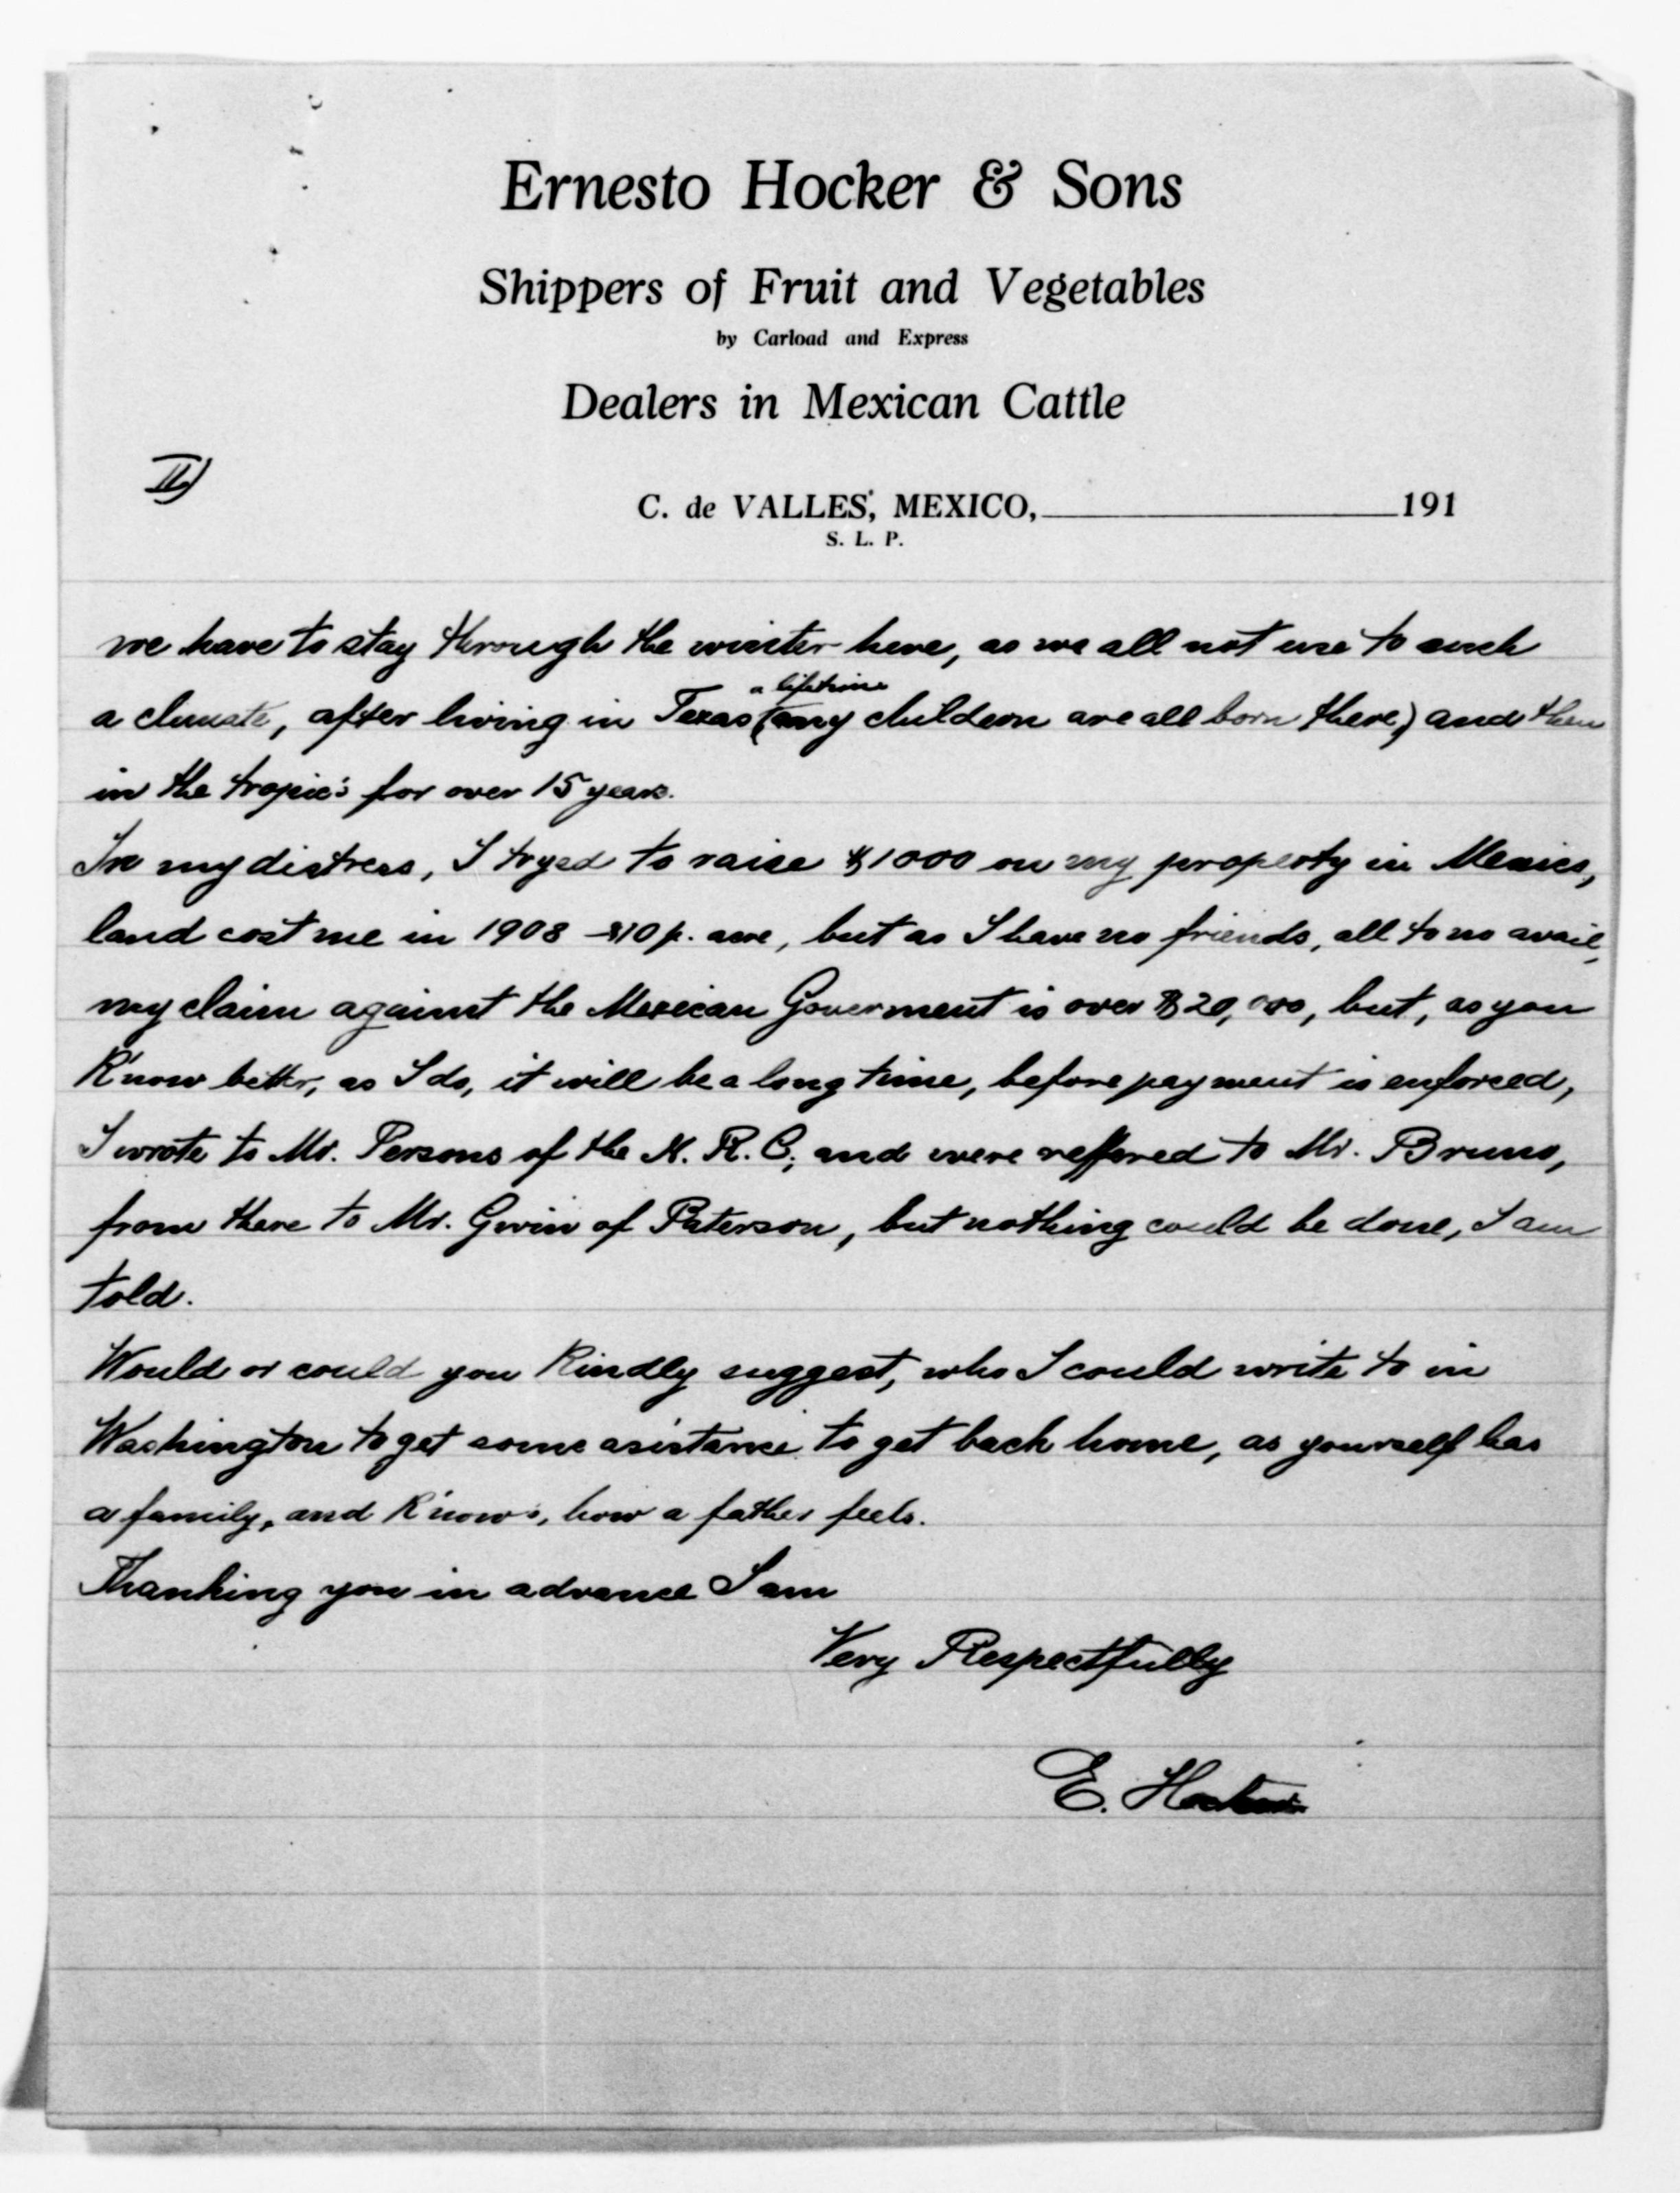 Ernesto Hocker & Sons
Shippers of Fruit and Vegetables
by Carload and Express
Dealers in Mexican Cattle
II)
C. de VALLES, MEXICO, 191
S. L. P.
we have to stay through the winter here, as we all not use to such
a lifetime
a climate, after living in Texas (my childern are all born there) and then
in the tropic's for over 15 years.
In my distress, I tryed to raise $1000 on my property in Mexico,
land cost me in 1908 $10 p. acre, but as I have no friends, all to no avail,
my claim against the Mexican Goverment is over $20,000, but, as you
Know better, as I do, it will be a long time, before payment is enforced,
I wrote to Mr. Persons of the R. C., and were reffered to Mr. Bruno,
from there to Mr. of Paterson, but nothing could be done, I am
told.
Would or could you Kindly suggest, who I could write to in
Washington to get some asistance to get back home, as yourself has
a family, and Know's, how a father feels.
Thanking you in advance I am
Very Respectfully
E. Hocker